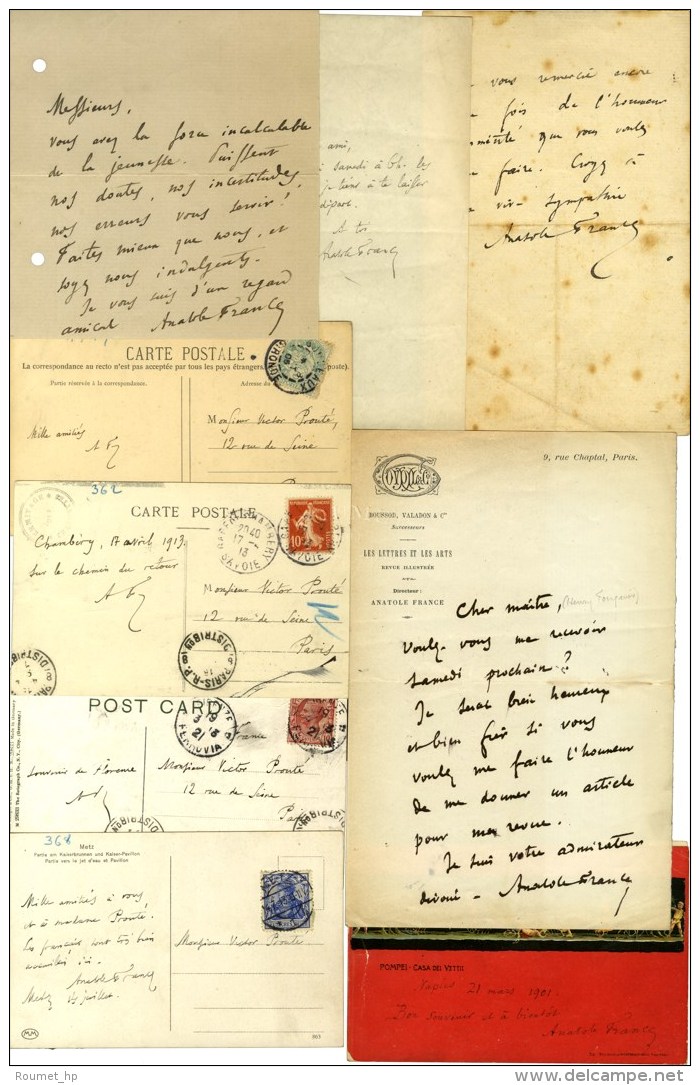 Messieurs,
vous avez la force incalculable
de la jeunesse. Puissent
nos doutes, nos incertitudes,
nos erreurs vous servir!
Faites mieux que nous, et
soyez nous indulgents.
Je vous suis d'un regard
amical Anatole France
ami,
samedi à 6h. les
je tiens à te laisser
A toi
Anatole France
vous remercie encore
fois de l'honneur
que vous voulez
faire. Croyez à
vive sympathie
Anatole France
CARTE POSTALE
La correspondance au recto n'est pas acceptée par tous les pays étrangers. poste)
Partie réservée à la correspondance.
Adresse du
GIRONDE
Mille amitiés
A F
Monsieur Victor Prouté,
12 rue de Seine
362
CARTE POSTALE
Chambéry, 17 avril 1913.
Sur le chemin du retour
A F
Monsieur Victor Prouté
12 rue de Seine
Paris
20 40
17 - 4
13
SAVOIE
10
PARIS-R.P.
DISTRIBon
POST CARD
FERROVIA
Souvenir de Florence
A F
Monsieur Victor Prouté
12 rue de Seine
Paris
368
Metz
Partie am Kaiserbrunnen und Kaiser-Pavillon.
Partie vers le jet d'eau et Pavillon
Mille amitiés à vous,
et à madame Prouté.
Les français sont très bien
accueillis ici.
Anatole France
Metz 15 juillet.
Monsieur Victor Prouté
MM
863
9, rue Chaptal, Paris.
BOUSSOD, VALADON & Cie
Successeurs
LES LETTRES ET LES ARTS
REVUE ILLUSTRÉE
Directeur:
ANATOLE FRANCE
Cher maître,
Voulez-vous me recevoir
samedi prochain?
Je serai bien heureux
et bien fier si vous
voulez me faire l'honneur
de me donner un article
pour ma revue.
Je suis votre admirateur
dévoué - Anatole France
POMPEI - CASA DEI VETTII
21 mars 1901.
Bon souvenir et à bientôt
Anatole France
© Roumet_hp
www.delcampe.net